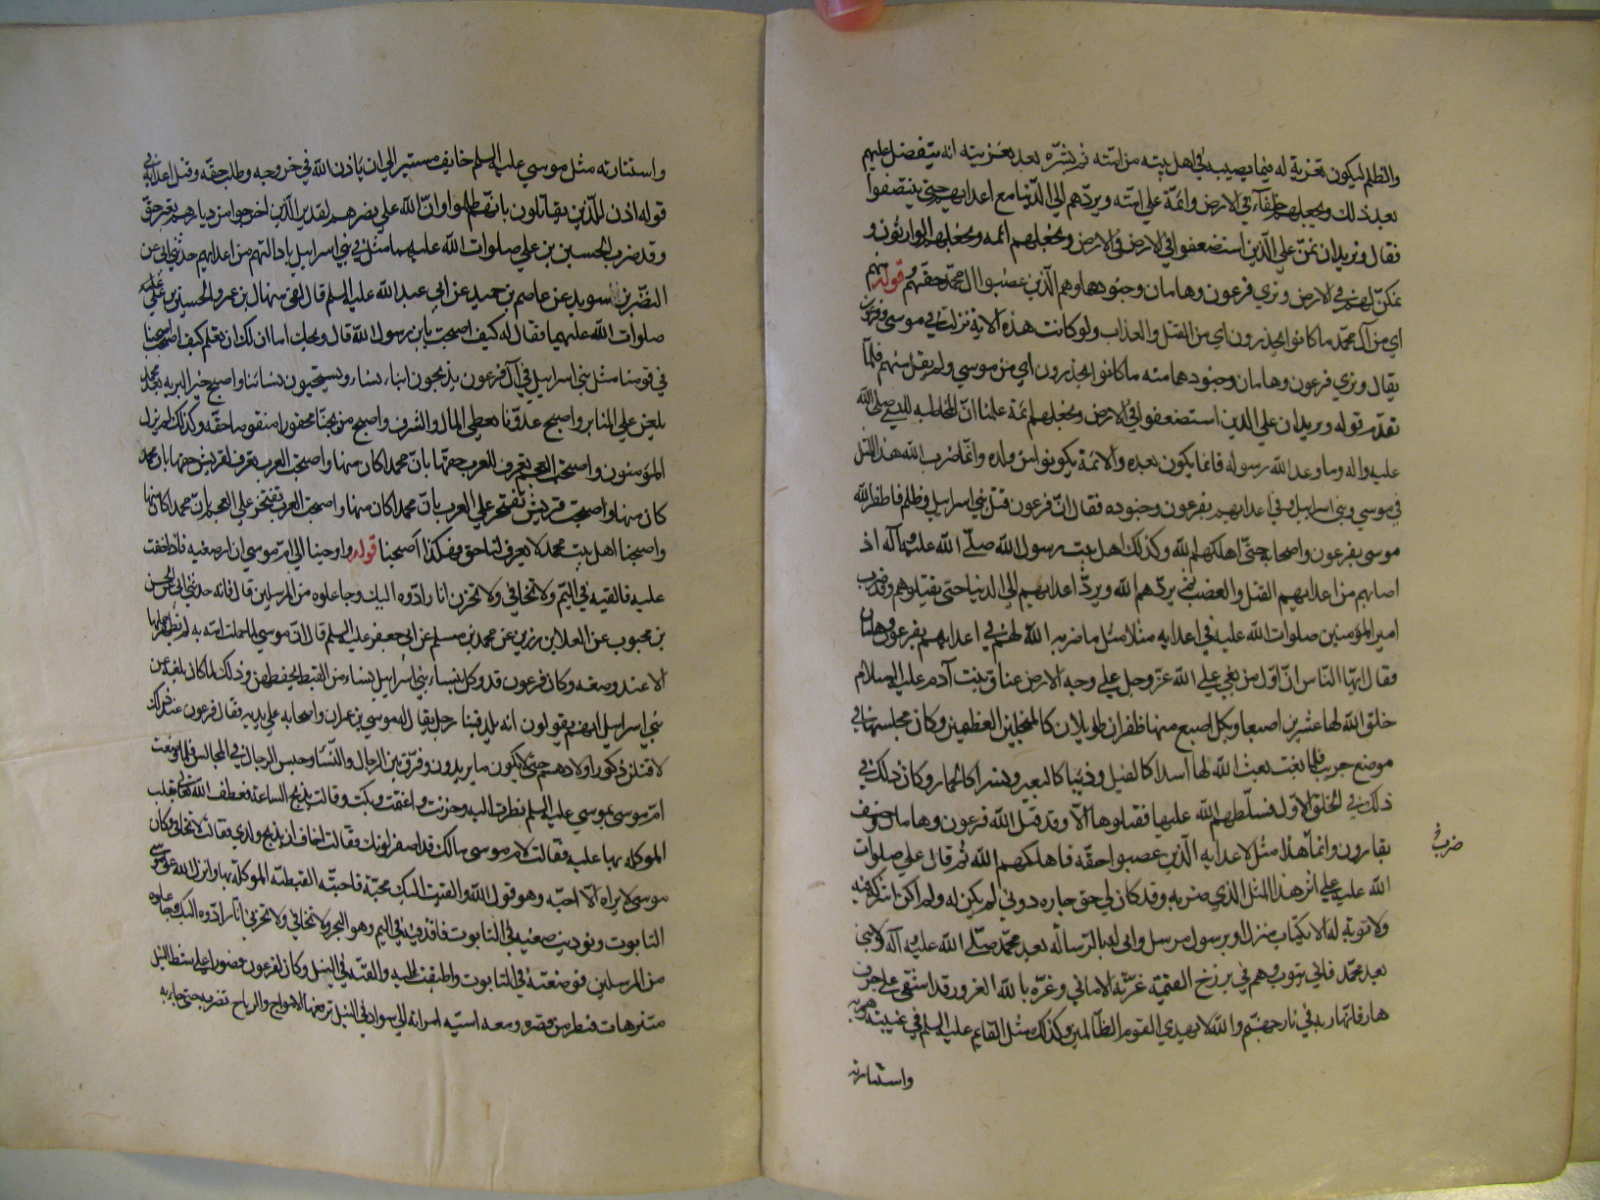 والظلم ليكون تعزية له فيما يصيبه في اهل بيته من امته ثم بشّره بعد تعزيته انه يتفضل عليهم
بعد ذلك ويجعلهم خلفآء في الارض وائمّة علي امته ويردّهم الي الدّنيا مع اعدايهم حتي ينتصفوا
فقال ونريد ان نمنّ علي الّذين استضعفوا في الارض ونجعلهم ائمه ونجعلهم الوارثون و
نمكنّ لهم في الارض ونري فرعون وهامان وجنودهما وهم الّذين غصبوا ال محمّد حقهم وقوله منهم
اي من آل محمّد ما كانوا يحذرون اي من القتل والعذاب ولو كانت هذه الاية نزلت في موسي وفرعون
يقال ونري فرعون وهامان وجنودهما منه ما كانوا يحذرون اي من موسي ولم يقل منهم فلمّا
تقدّم قوله ونريد ان علي الذين استضعفوا في الارض ونجعلهم ائمة علمنا انّ المخاطبه للنبي صلي الله
عليه واله وما وعد الله رسوله فانما يكون بعده والائمة يكونوا من ولده وانّما ضرب الله هذا المثل
في موسي وبني اسرائيل وفي اعدايهم بفرعون وجنوده فقال انّ فرعون قتل بني اسرائيل وظلم فاظفر الله
موسي بفرعون واصحابه حتّي اهلكهم الله وكذلك اهل بيت رسول الله صلّي الله عليه وآله اذ
اصابهم من اعدايهم القتل والغصب ثم يردّهم الله ويردّ اعدايهم الي الدنيا حتي يقتلوهم وقد ضرب
امير المؤمنين صلوات الله عليه في اعدايه مثلا مثل ما ضربه الله لهم في اعدايهم بفرعون وهامان
فقال ايّها النّاس انّ اوّل من بغي علي الله عزّ وجل علي وجه الارض عناق بنت آدم عليه السلام
خلق الله لها عشرين اصبعا وبكل اصبع منها ظفران طويلان كالمنجلين العظيمين وكان مجلسها في
موضع جريب فلما بغت بعث الله لها اسدا كالفيل وذيبا كالبعير ونسرا كالحمار وكان ذلك في
ذلك في الخلق الاوّل فسلّطهم الله عليها فقتلوها الّا وقد قتل الله فرعون وهامان وخسف
بقارون وانما هذا مثل لاعدايه الّذين غصبوا حقّه فاهلكهم الله ثم قال علي صلوات
الله عليه علي اثر هذا المثل الذي ضربه وقد كان لي حق حازه دوني لم يكن له ولم اكن اشركه فيه
ولا توبة له الا بكتاب منزل او برسول مرسل واني له بالرّسالة بعد محمّد صلّي الله عليه وآله ولا نبي
بعد محمّد فاني يتوب وهم في برزخ القيمة غرّته الاماني وغرّه بالله الغرور قد اشفي علي جرف
هار فانهار به في نار جهنّم والله لا يهدي القوم الظّالمين وكذلك مثل القايم عليه السلم في غيبته وهربه
واستتارته
ضرب
واستتارته مثل موسي عليه السلم خايف مستتر الي ان ياذن الله في خروجه وطلب حقّه وقتل اعدايه في
قوله اذن للّذين يقاتلون بانهم ظلموا وانّ الله علي نصرهم لقدير الّذين اخرجوا من ديارهم بغير حقّ
وقد ضرب الحسين بن علي صلوات الله عليهما مثل في بني اسرائيل بادالتهم من اعدايهم حدثني ابي عن
النضر بن سويد عن عاصم بن حميد عن ابي عبد الله عليه السلم قال لقي منهال بن عمرو الحسين بن علي
صلوات الله عليهما فقال له كيف اصبحت يابن رسول الله قال ويحك اما ان لك ان تعلم كيف اصبحت اصبحنا
في قومنا مثل بني اسرائيل في آل فرعون يذبحون ابناءنا ويستحيون نسائنا واصبح خير البريه بعد محمد
يلعن علي المنابر واصبح عدوّنا يعطي المال والشرف واصبح من يحبنا محقورا منقوصا حقّه وكذلك لم يزل
المؤمنون واصبحت العجم تعرف للعرب حقها بانّ محمدا كان منها واصبحت العرب تعرف لقريش حقها بان محمد
كان منها واصبحت قريش تفتخر علي العرب بانّ محمدا كان منها واصبحت العرب تفتخر علي العجم بان محمدا كان منها
واصبحنا اهل بيت محمد لا يعرف لنا حق فهكذا اصبحنا قوله واوحينا الي امّ موسي ان ارضعيه فاذا خفت
عليه فالقيه في اليّم ولا تخافي ولا تحزن انا رادّوه اليك وجاعلوه من المرسلين قال فانه حدثني ابي عن الحسن
بن محبوب عن العلا بن رزين عن محمد بن مسلم عن ابي جعفر عليه السلم قال انّ موسي لما حملت امّه به لم يظهر حملها
الا عند وضعه وكان فرعون قد وكل بنساء بني اسرائيل نساء من القبط يحفظهن وذلك لما كان بلغه عن
بني اسرائيل انهم يقولون انه يلد فينا رجل يقال له موسي بن عمران واصحابه علي يديه فقال فرعون عند ذلك
لاقتلن ذكور اولادهم حتّي لا يكون ما يريدون وفرّق بين الرّجال والنّساء وحبس الرجال في المجالس فلما وضعت
امّ موسي بموسي عليه السلم نظرت اليه وحزنت واغتمّت وبكت وقالت يذبح الساعة فعطف الله تعالي قلب
الموكله بها عليه فقالت لام موسي مالك قد اصفر لونك فقالت اخاف ان يذبح ولدي فقالت لا تخافي وكان
موسي لا يراه احد الّا احبّه وهو قول الله والقيت عليك محبّة فاحبتّه القبطيّة الموكلة بها وانزل الله علي موسي
التابوت ونوديت ضعيه في التابوت فاقذفيه في اليم وهو البحر ولا تخافي ولا تحزني انّا رادّوه اليك وجاعلوه
من المرسلين فوضعته في التابوت واطبقت عليه والقته في النيل وكان لفرعون قصورا علي شط النيل
متنزهات فنظر من قصره ومعه اسيه امراته الي سواد في النيل ترفعه الامواج والرياح تضربه حتي جاءت به